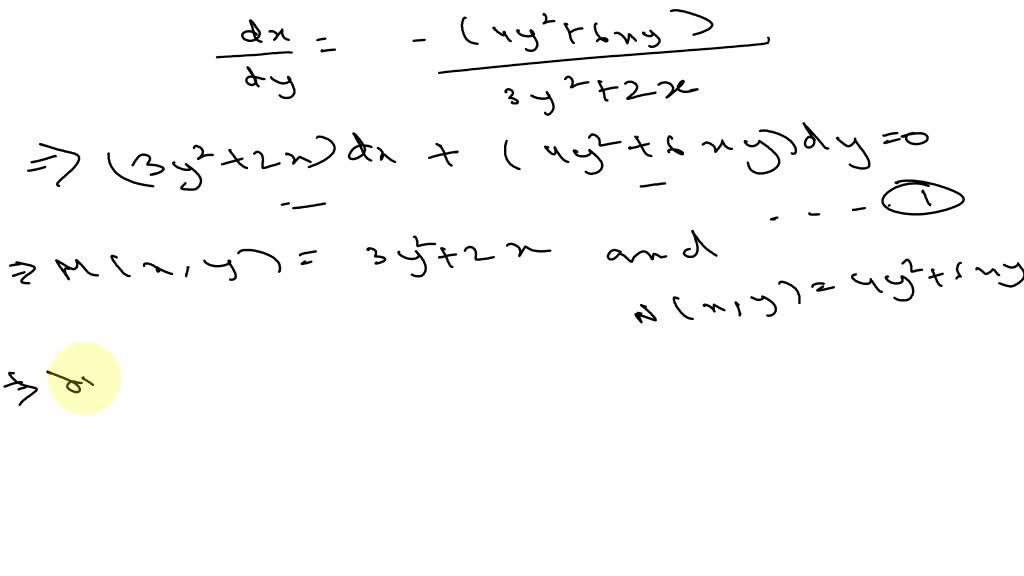 dx/dy = - (4y² + 6xy) / 3y² + 2x
⇒ (3y² + 2x) dx + (4y² + 6xy) dy = 0
- - - ①
⇒ M(x, y) = 3y² + 2x and
N(x, y) = 4y² + 6xy
⇒